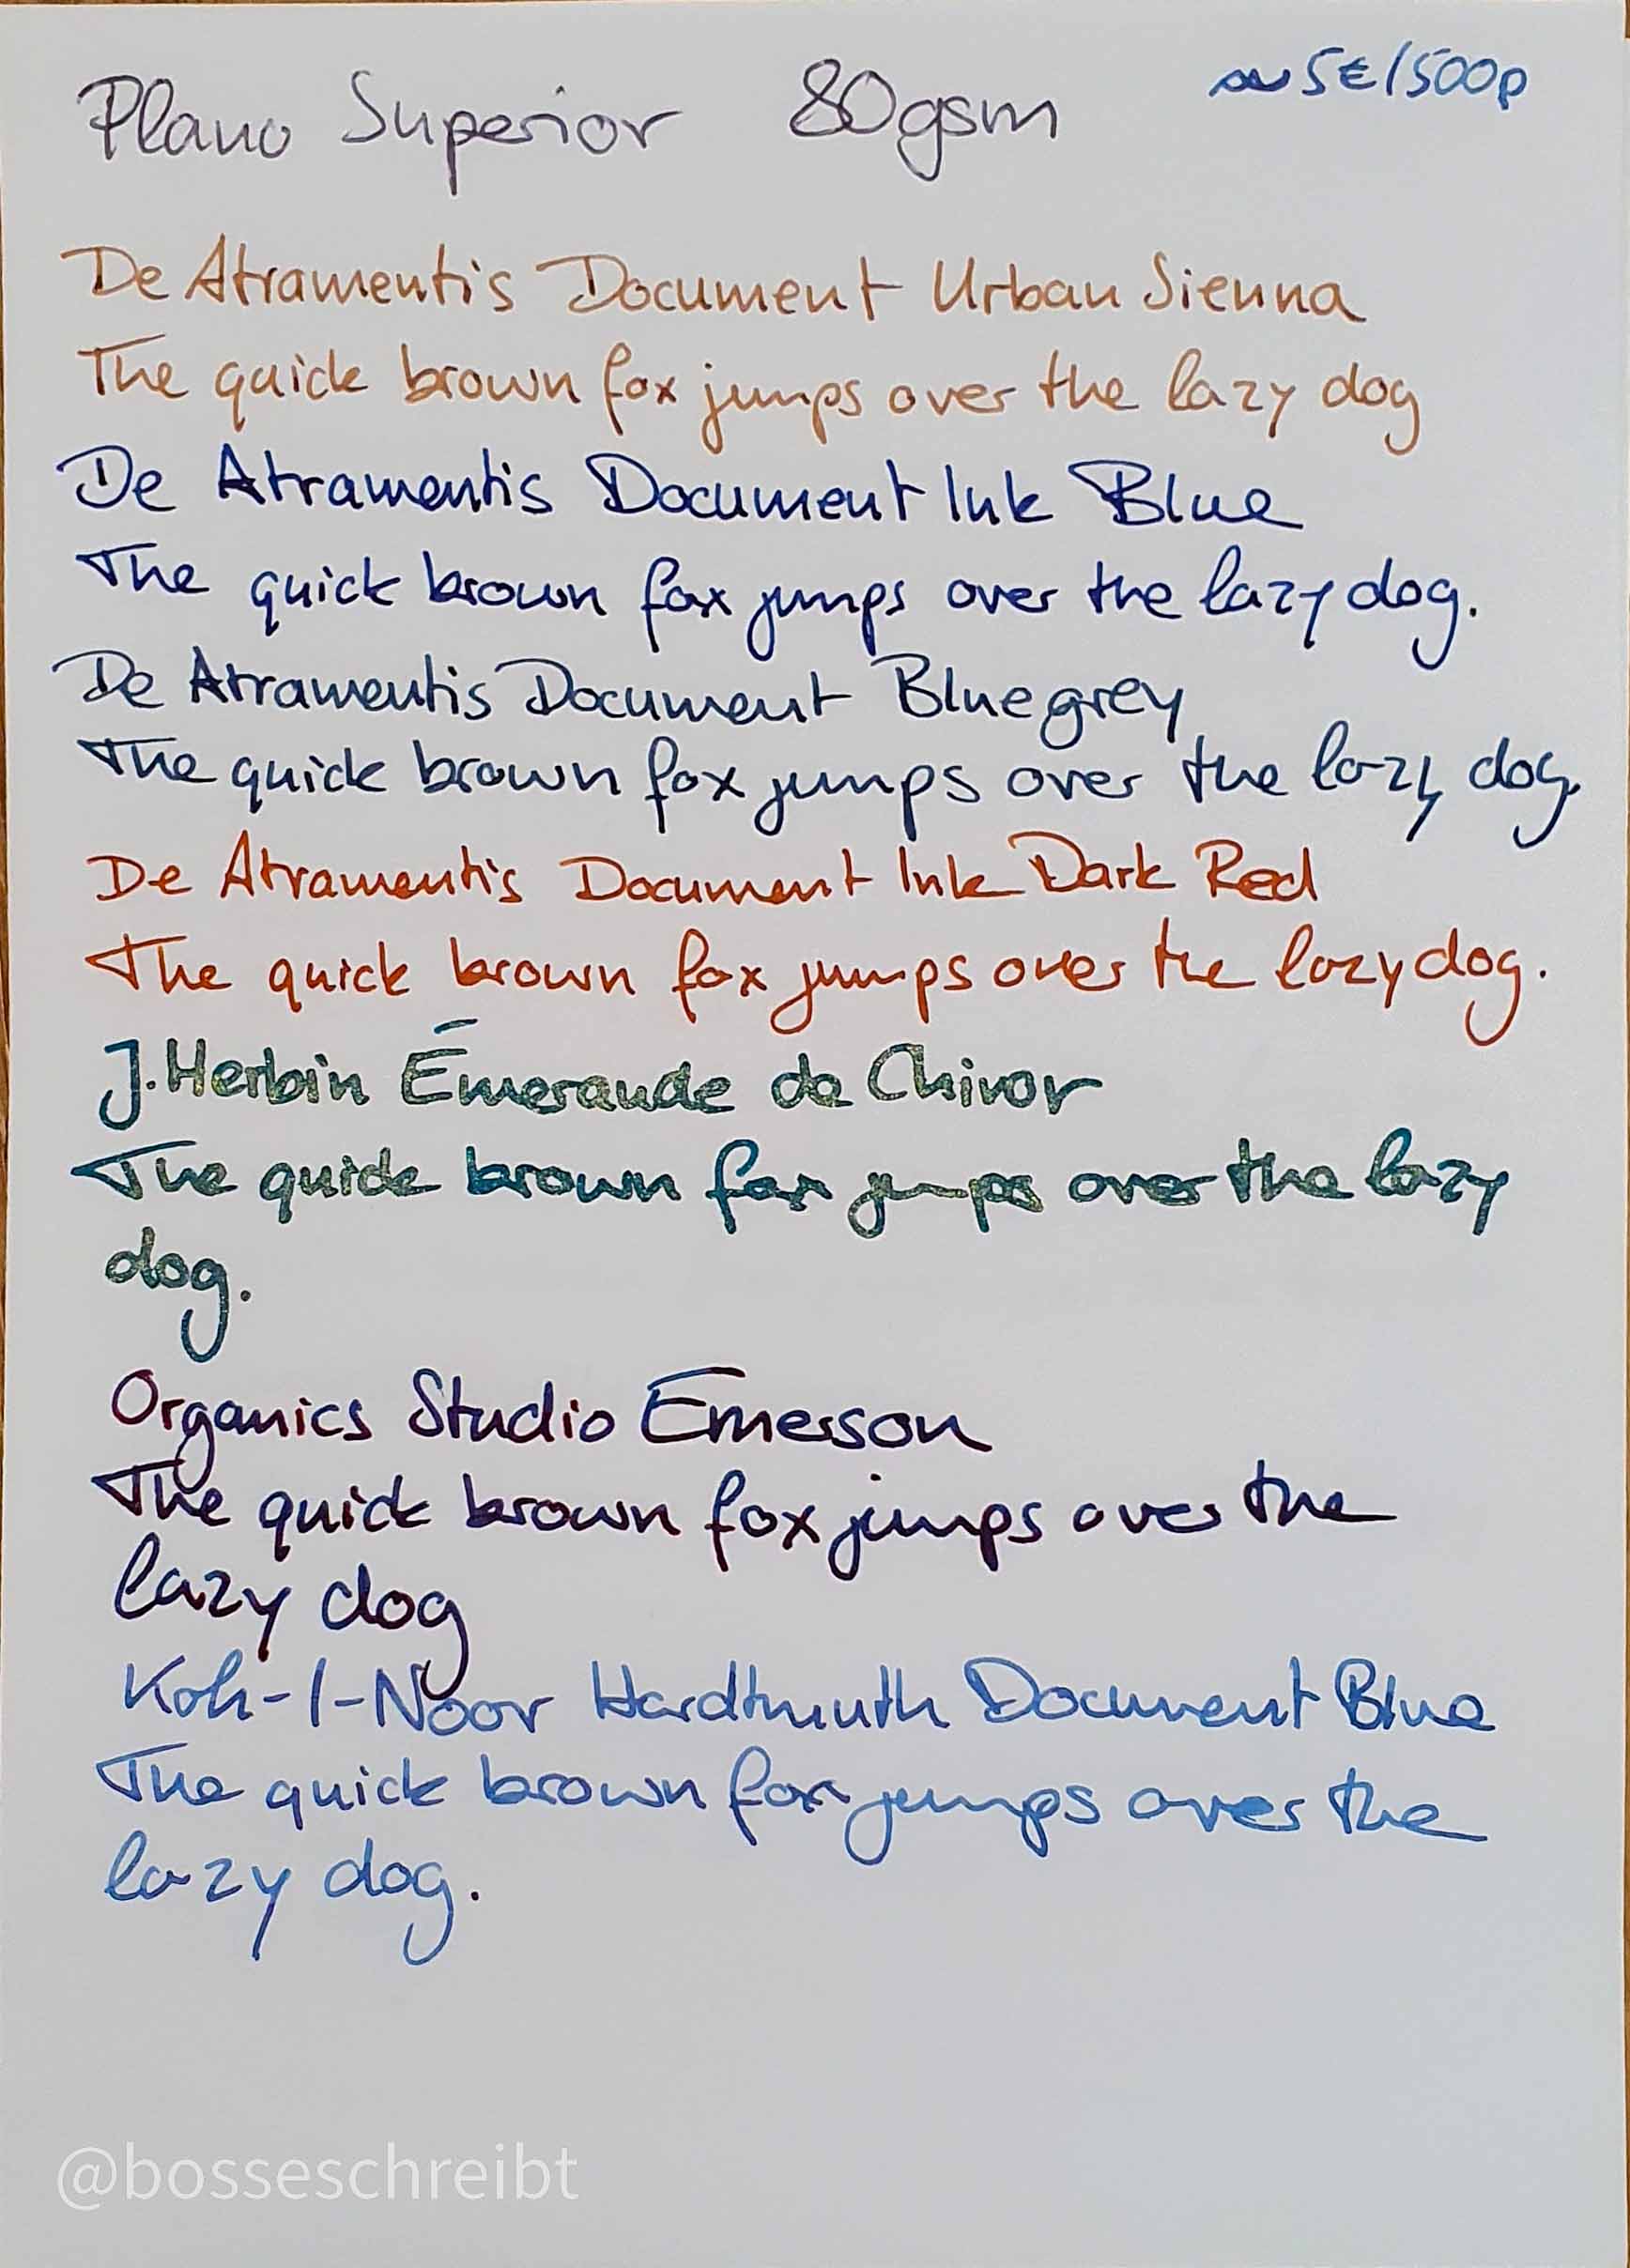 Plano Superior 80gsm ~ 5€/500p
De Atramentis Document Urban Sienna
The quick brown fox jumps over the lazy dog
De Atramentis Document Ink Blue
The quick brown fox jumps over the lazy dog.
De Atramentis Document Bluegrey
The quick brown fox jumps over the lazy dog.
De Atramentis Document Ink Dark Red
The quick brown fox jumps over the lazy dog.
J. Herbin Émeraude de Chivor
The quick brown fox jumps over the lazy
dog.
Organics Studio Emerson
The quick brown fox jumps over the
lazy dog
Koh-I-Noor Hardtmuth Document Blue
The quick brown fox jumps over the
lazy dog.
@bosseschreibt